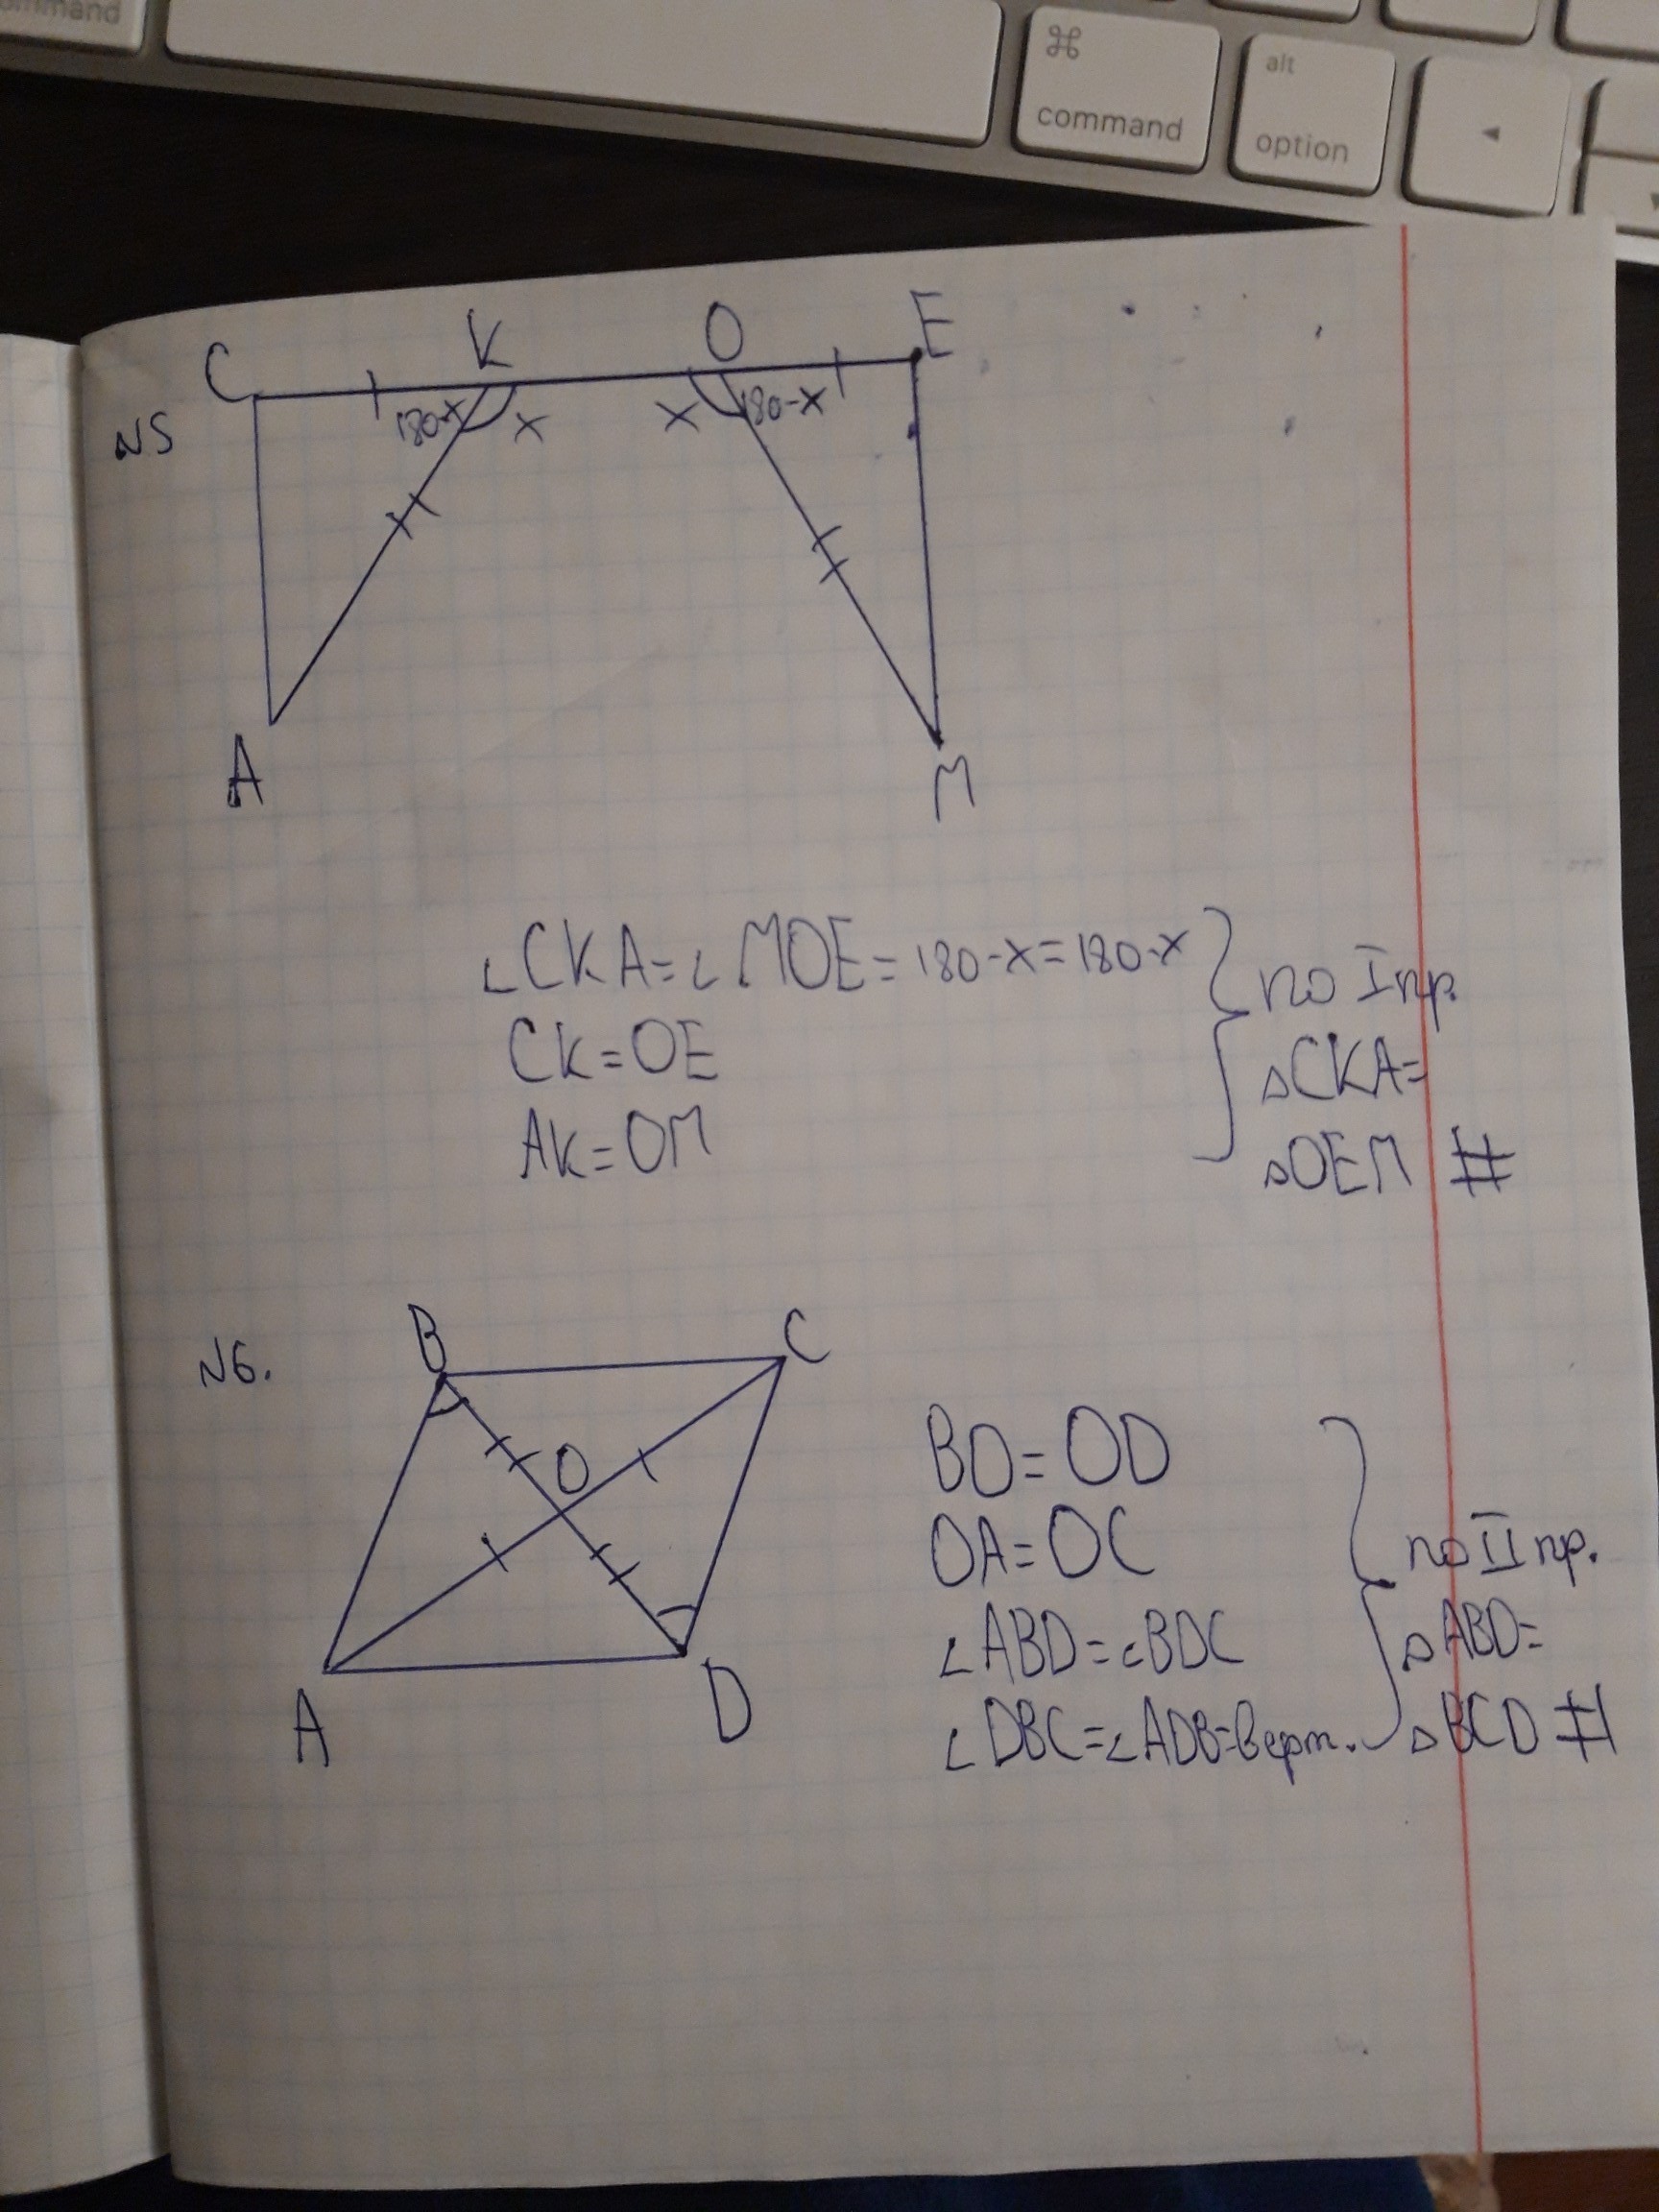 command
⌘
command
alt
option
◄
C K O E
N5 180-x x x 180-x
A M
∠CKA=∠MOE=180-x=180-x
CK=OE
AK=OM
по I пр.
△CKA=
△OEM #
N6.
B C
O
A D
BO=OD
OA=OC
∠ABD=∠BDC
∠DBC=∠ADB=верт.
по II пр.
△ABD=
△BCD #